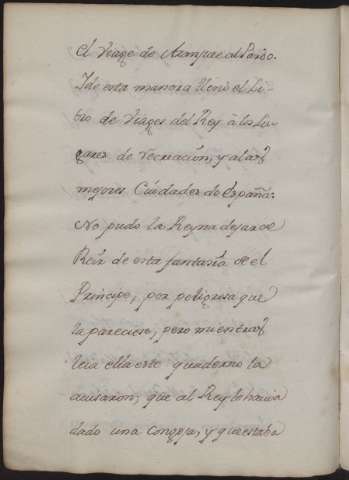 el Viage de Aranjuez al Pardo.
I de esta manera llenò el Li-
bro de Viages del Rey à los Lu-
gares de recreacion, y alas
mejores Ciudades de España.
No pudo la Reyna dejar de
Reir de esta fantasia de el
Principe, por peligrosa que
la pareciese, pero mientras
leia ella este quaderno la
auisaron, que al Rey le hauia
dado una congoja, y que estaba